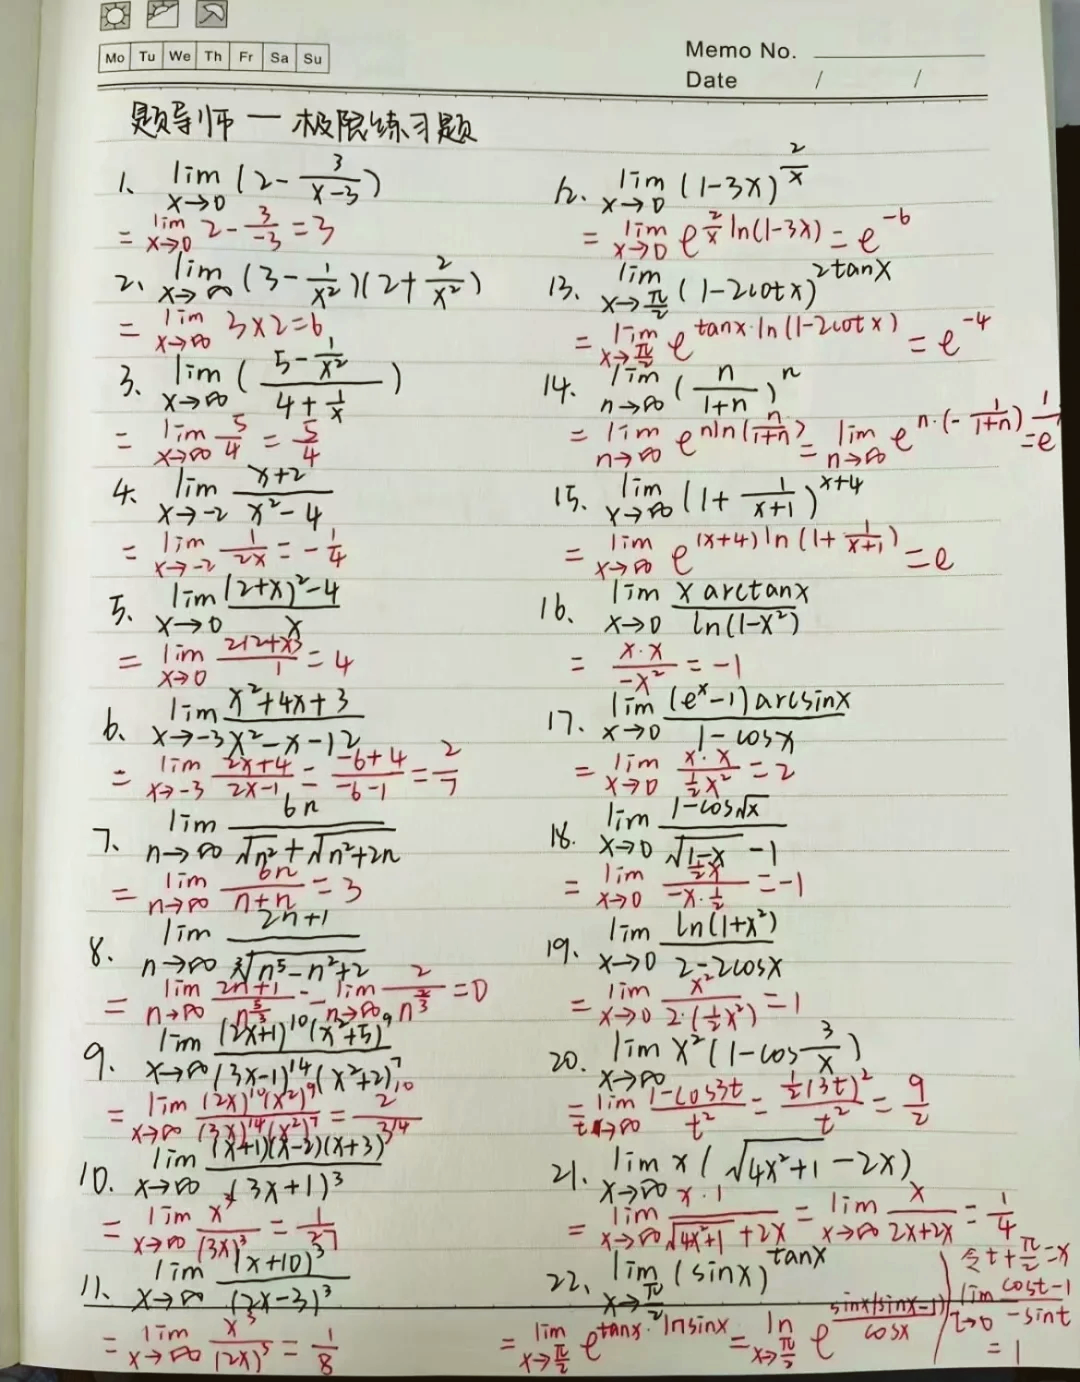 Mo Tu We Th Fr Sa Su
Memo No.
Date / /
题导师一极限练习题
1. lim x→0 (2 - 3/(x-3))
= lim x→0 2 - 3/(-3) = 3
2. lim x→∞ (3 - 1/x²)(2 + 2/x²)
= lim x→∞ 3×2=6
3. lim x→∞ ((5 - 1/x²)/(4 + 1/x))
= lim x→∞ 5/4 = 5/4
4. lim x→-2 (x+2)/(x²-4)
= lim x→-2 1/(2x) = -1/4
5. lim x→0 ((2+x)²-4)/x
= lim x→0 2(2+x)/1 = 4
6. lim x→-3 (x²+4x+3)/(x²-x-12)
= lim x→-3 (2x+4)/(2x-1) = (-6+4)/(-6-1) = 2/7
7. lim n→∞ 6n/(√n² + √(n²+2n))
= lim n→∞ 6n/(n+n) = 3
8. lim n→∞ (2n+1)/³√(n⁵-n²+2)
= lim n→∞ (2n+1)/n^(5/3) = lim n→∞ 2/n^(2/3) = 0
9. lim x→∞ (2x+1)¹⁰(x²+5)⁹/(3x-1)¹⁴(x²+2)⁷
= lim x→∞ (2x)¹⁰(x²)⁹/(3x)¹⁴(x²)⁷ = 2¹⁰/3¹⁴
10. lim x→∞ (x+1)(x-2)(x+3)/(3x+1)³
= lim x→∞ x³/(3x)³ = 1/27
11. lim x→∞ (x+10)³/(2x-3)³
= lim x→∞ x³/(2x)³ = 1/8
12. lim x→0 (1-3x)^(2/x)
= lim x→0 e^(2/x ln(1-3x)) = e^(-6)
13. lim x→π/2 (1-2cotx)^(2tanx)
= lim x→π/2 e^(tanx·ln(1-2cotx)) = e^(-4)
14. lim n→∞ (n/(1+n))^n
= lim n→∞ e^(nln(n/(1+n))) = lim n→∞ e^(n·(-1/(1+n))) = 1/e
15. lim x→∞ (1 + 1/(x+1))^(x+4)
= lim x→∞ e^((x+4)ln(1+1/(x+1))) = e
16. lim x→0 xarctanx/ln(1-x²)
= x·x/(-x²) = -1
17. lim x→0 (e^x-1)arcsinx/(1-cosx)
= lim x→0 x·x/(½x²) = 2
18. lim x→0 (1-cos√x)/(√(1-x) -1)
= lim x→0 ½x/(-x·½) = -1
19. lim x→0 ln(1+x²)/(2-2cosx)
= lim x→0 x²/(2·(½x²)) = 1
20. lim x→∞ x²(1-cos 3/x)
= lim t→∞ (1-cos3t)/t² = ½(3t)²/t² = 9/2
21. lim x→∞ x(√(4x²+1) - 2x)
= lim x→∞ x·1/(√(4x²+1) + 2x) = lim x→∞ x/(2x+2x) = 1/4
22. lim x→π/2 (sinx)^(tanx)
= lim x→π/2 e^(tanx·lnsinx) = ln x→π/2 e^(sinx(sinx-1)/cosx)
令t+π/2=x
lim t→0 (cost-1)/(-sint)
= 1